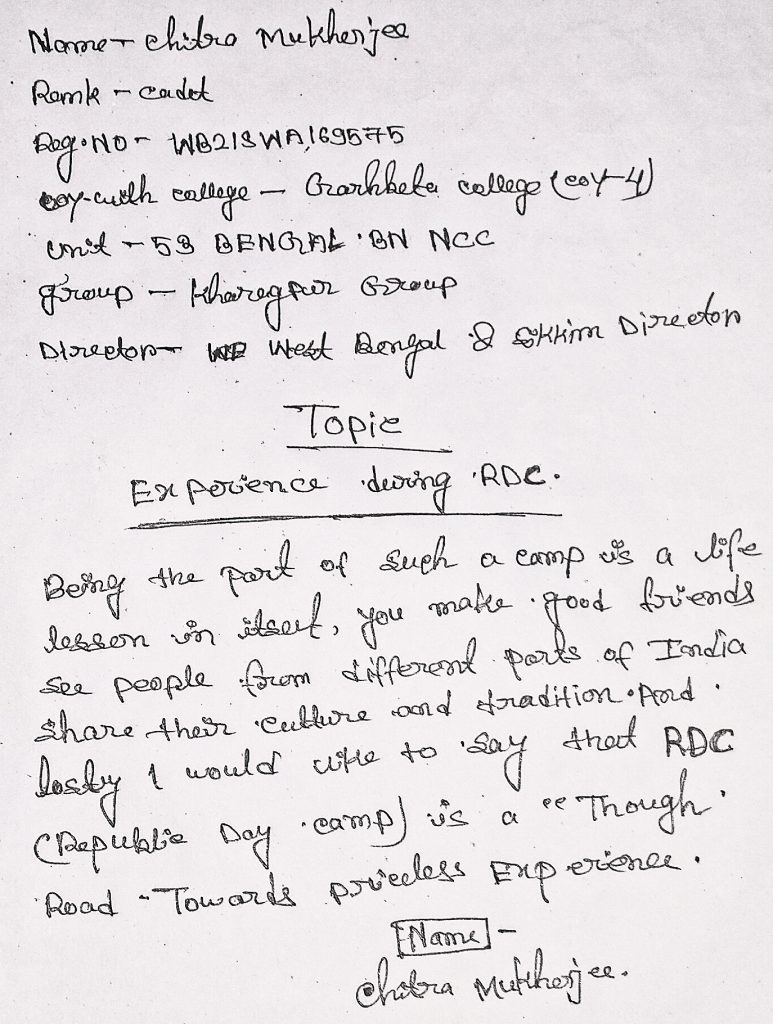 Name - Chitra Mukherjee
Rank - cadet
Reg. NO - WB21SWA169575
coy with college - Garhbeta college (coy-4)
Unit - 53 BENGAL BN NCC
group - Kharagpur Group
Director - West Bengal & Sikkim Director
Topic
Experience during RDC.
Being the part of such a camp is a life
lesson in itself, you make good friends
see people from different parts of India
share their culture and tradition. And
lastly I would like to say that RDC
(Republic Day camp) is a "Though
Road - Towards priceless Experience.
[Name] -
Chitra Mukherjee.